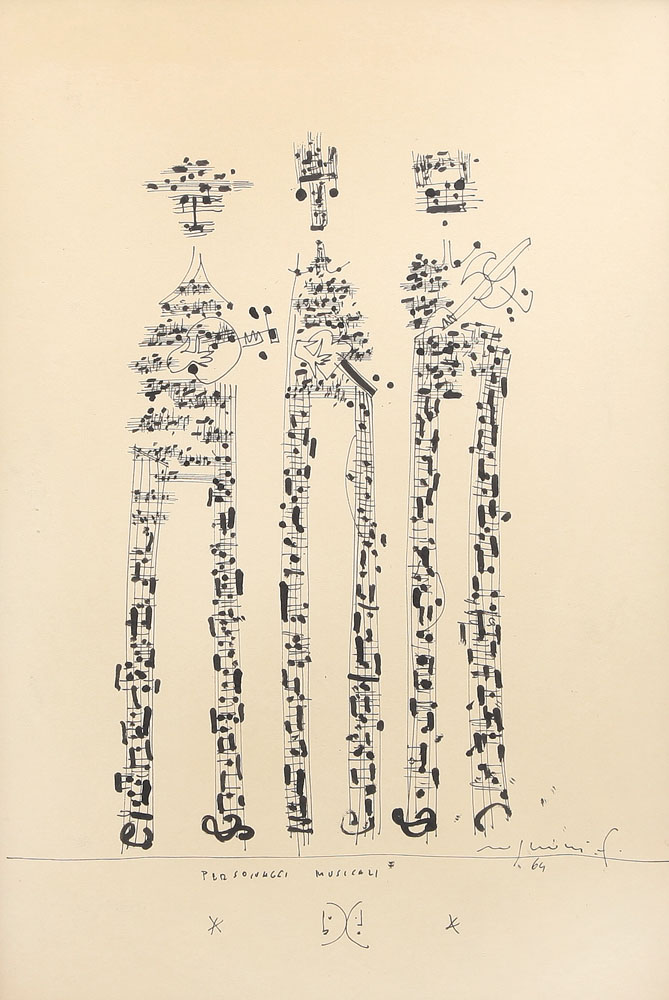 '64
PERSONAGGI MUSICALI